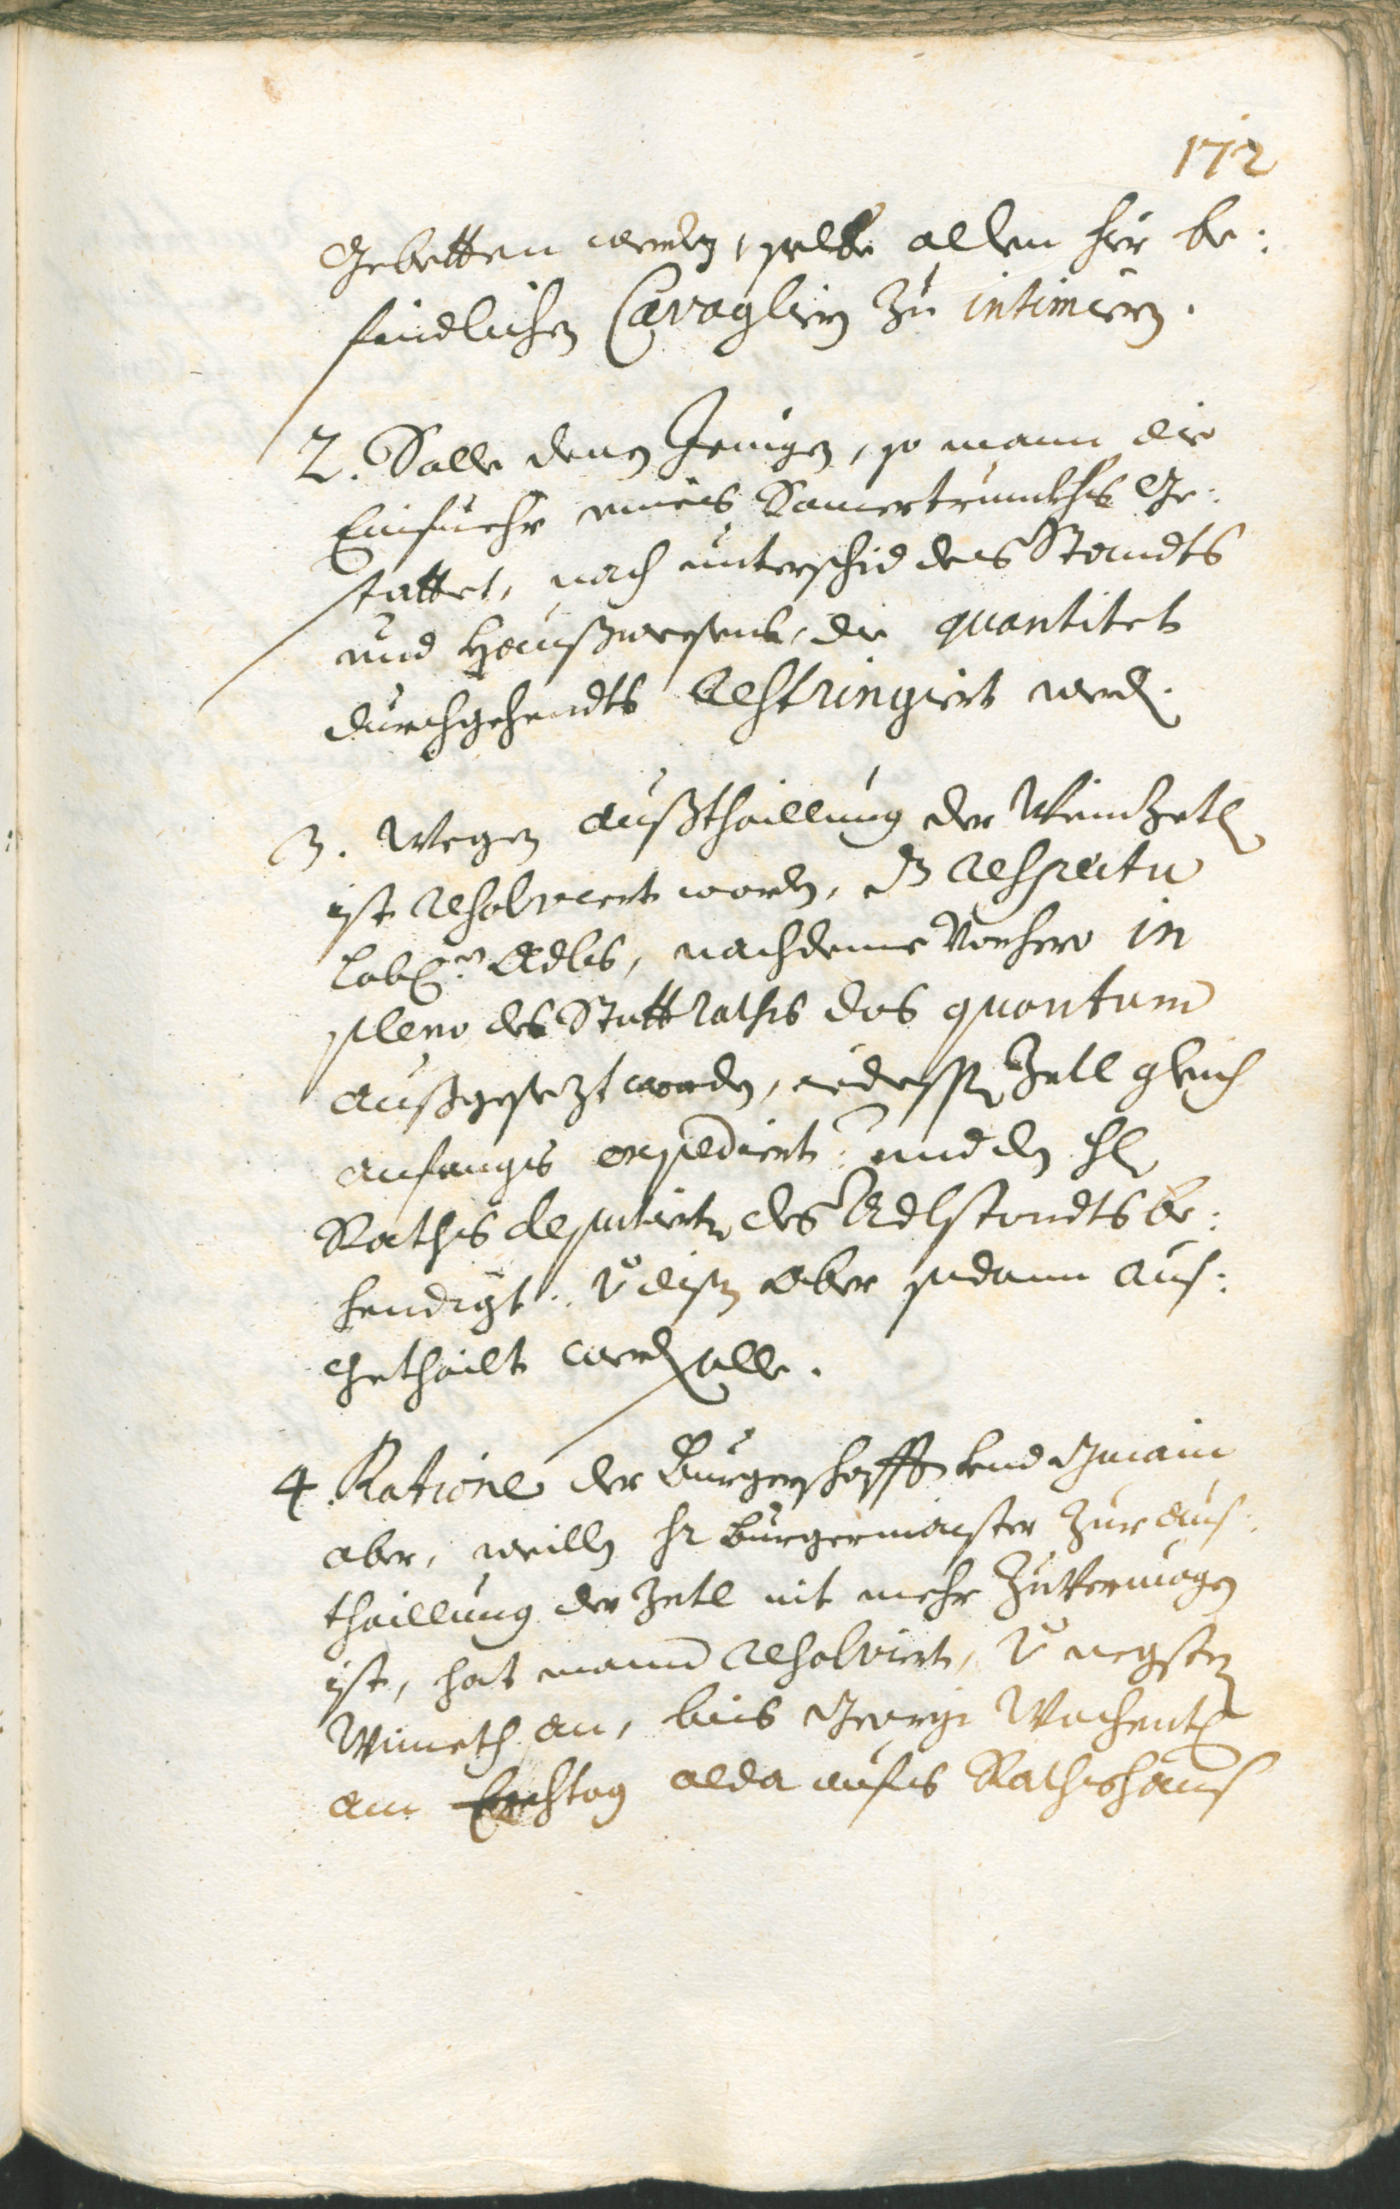 172
Gebetten werden, selbe allen hir be:
findlichen Cavaglirn zu intimiern.
2. Solle denen Jenigen, so mann die
Einfuehr eines Somertrunkhs Ge:
stattet, nach unterschid des Standts
und Haußwesens, die quantitet
durchgehendts restringiert werdn.
3. Wegen außthaillung der Weinzetl
ist resolviert worden, dß respectu
Löbl: Adls, nachdeme Vorhero in
pleno des Statt Raths das quantum
außgesezt worden, die Zetl gleich
anfangs expediert: und den Hl
Raths deputierten des Adlstandts be:
hendigt: disen aber sodann aus:
gethailt werdn solle.
4. Ratione der Burgerschafft und Gmain
aber, weilln Hr Burgermaister zur aus:
thaillung der Zetl nit mehr zuvermögen
ist, hat mann resolviert, negsten
Wimeth an, bis Georgi Wochentl
am Erchtag alda aufs Rathshaus